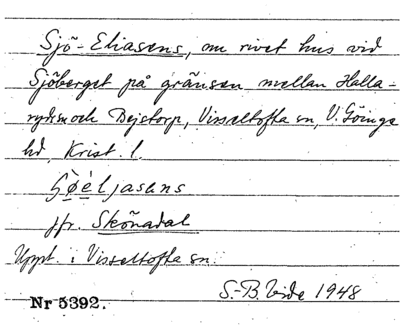 Sjö-Eliasens, nu rivet hus vid
Sjöberget på gränsen mellan Halla-
ryds sn och Bejstorp, Visseltofta sn, V. Göinge
hd, Krist. l.
jfr. Skönadal
Uppt. i Visseltofta sn.
S.-B. Vide 1948
Nr 5392.